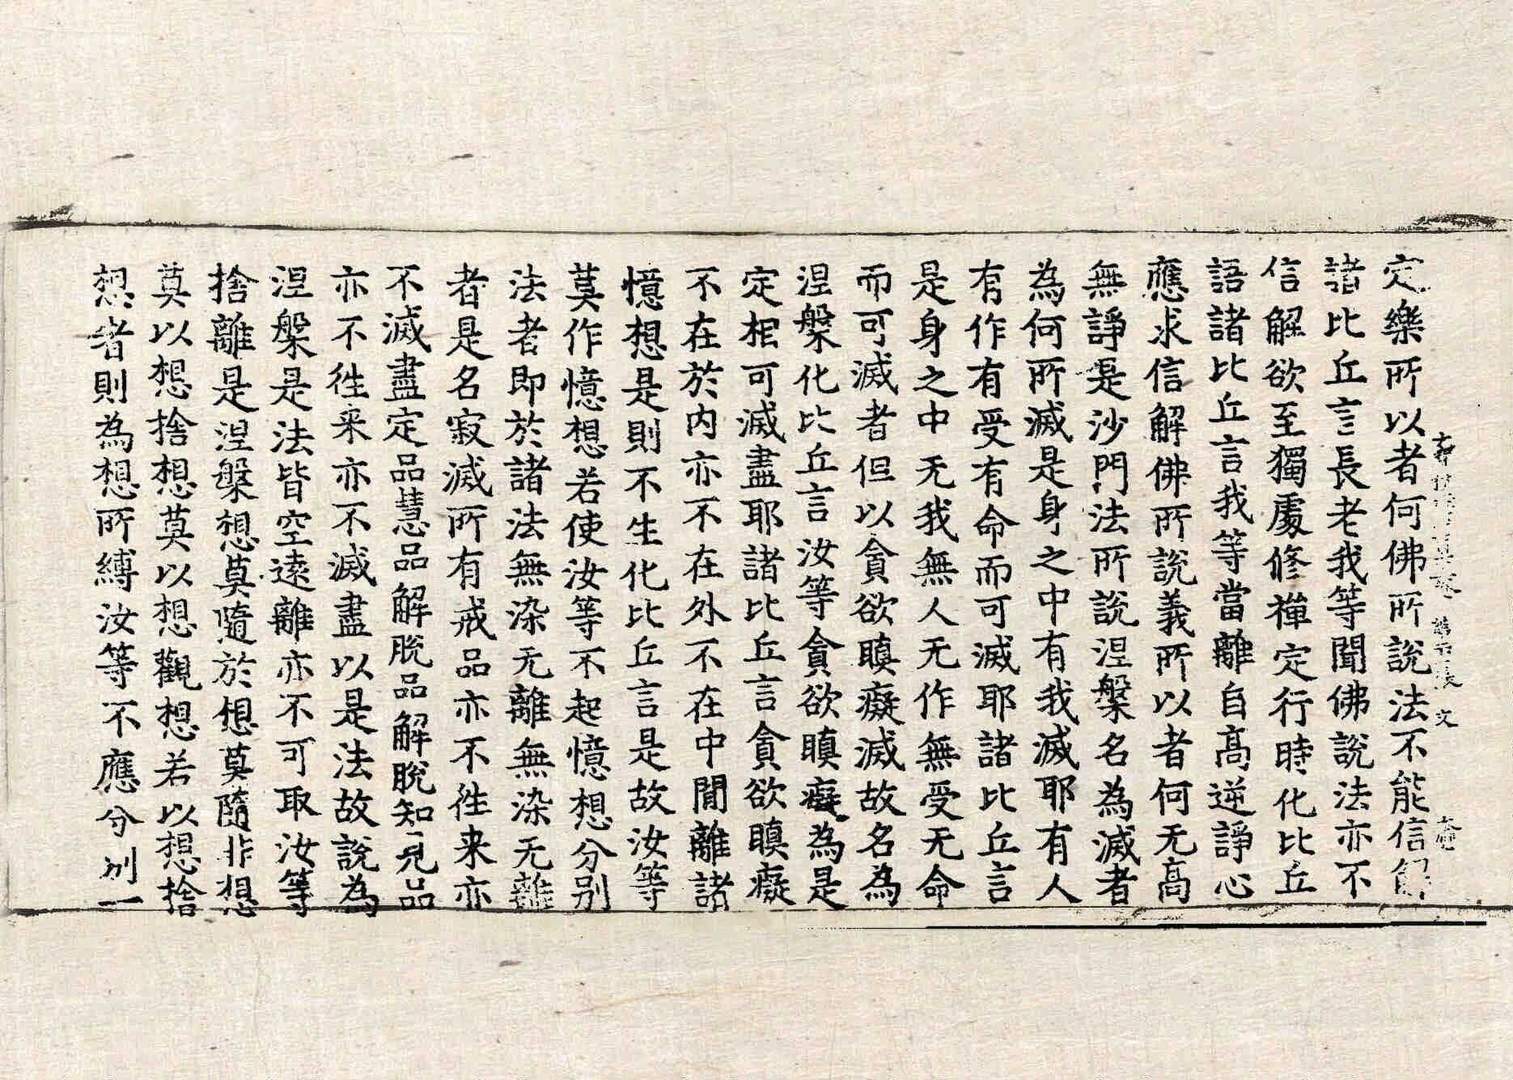 定樂所以者何佛所說法不能信解
諸比丘言長老我等聞佛說法亦不
信解欲至獨處修禪定行時化比丘
語諸比丘言我等當離自高逆諍心
應求信解佛所說義所以者何无高
無諍是沙門法所說涅槃名為滅者
為何所滅是身之中有我滅耶有人
有作有受有命而可滅耶諸比丘言
是身之中无我無人无作無受无命
而可滅者但以貪欲瞋癡滅故名為
涅槃化比丘言汝等貪欲瞋癡為是
定相可滅盡耶諸比丘言貪欲瞋癡
不在於內亦不在外不在中間離諸
憶想是則不生化比丘言是故汝等
莫作憶想若使汝等不起憶想分別
法者即於諸法無染无離無染无離
者是名寂滅所有戒品亦不徃来亦
不滅盡定品慧品解脫品解脫知見品
亦不徃来亦不滅盡以是法故說為
涅槃是法皆空遠離亦不可取汝等
捨離是涅槃想莫隨於想莫隨非想
莫以想捨想莫以想觀想若以想捨
想者則為想所縛汝等不應分別一